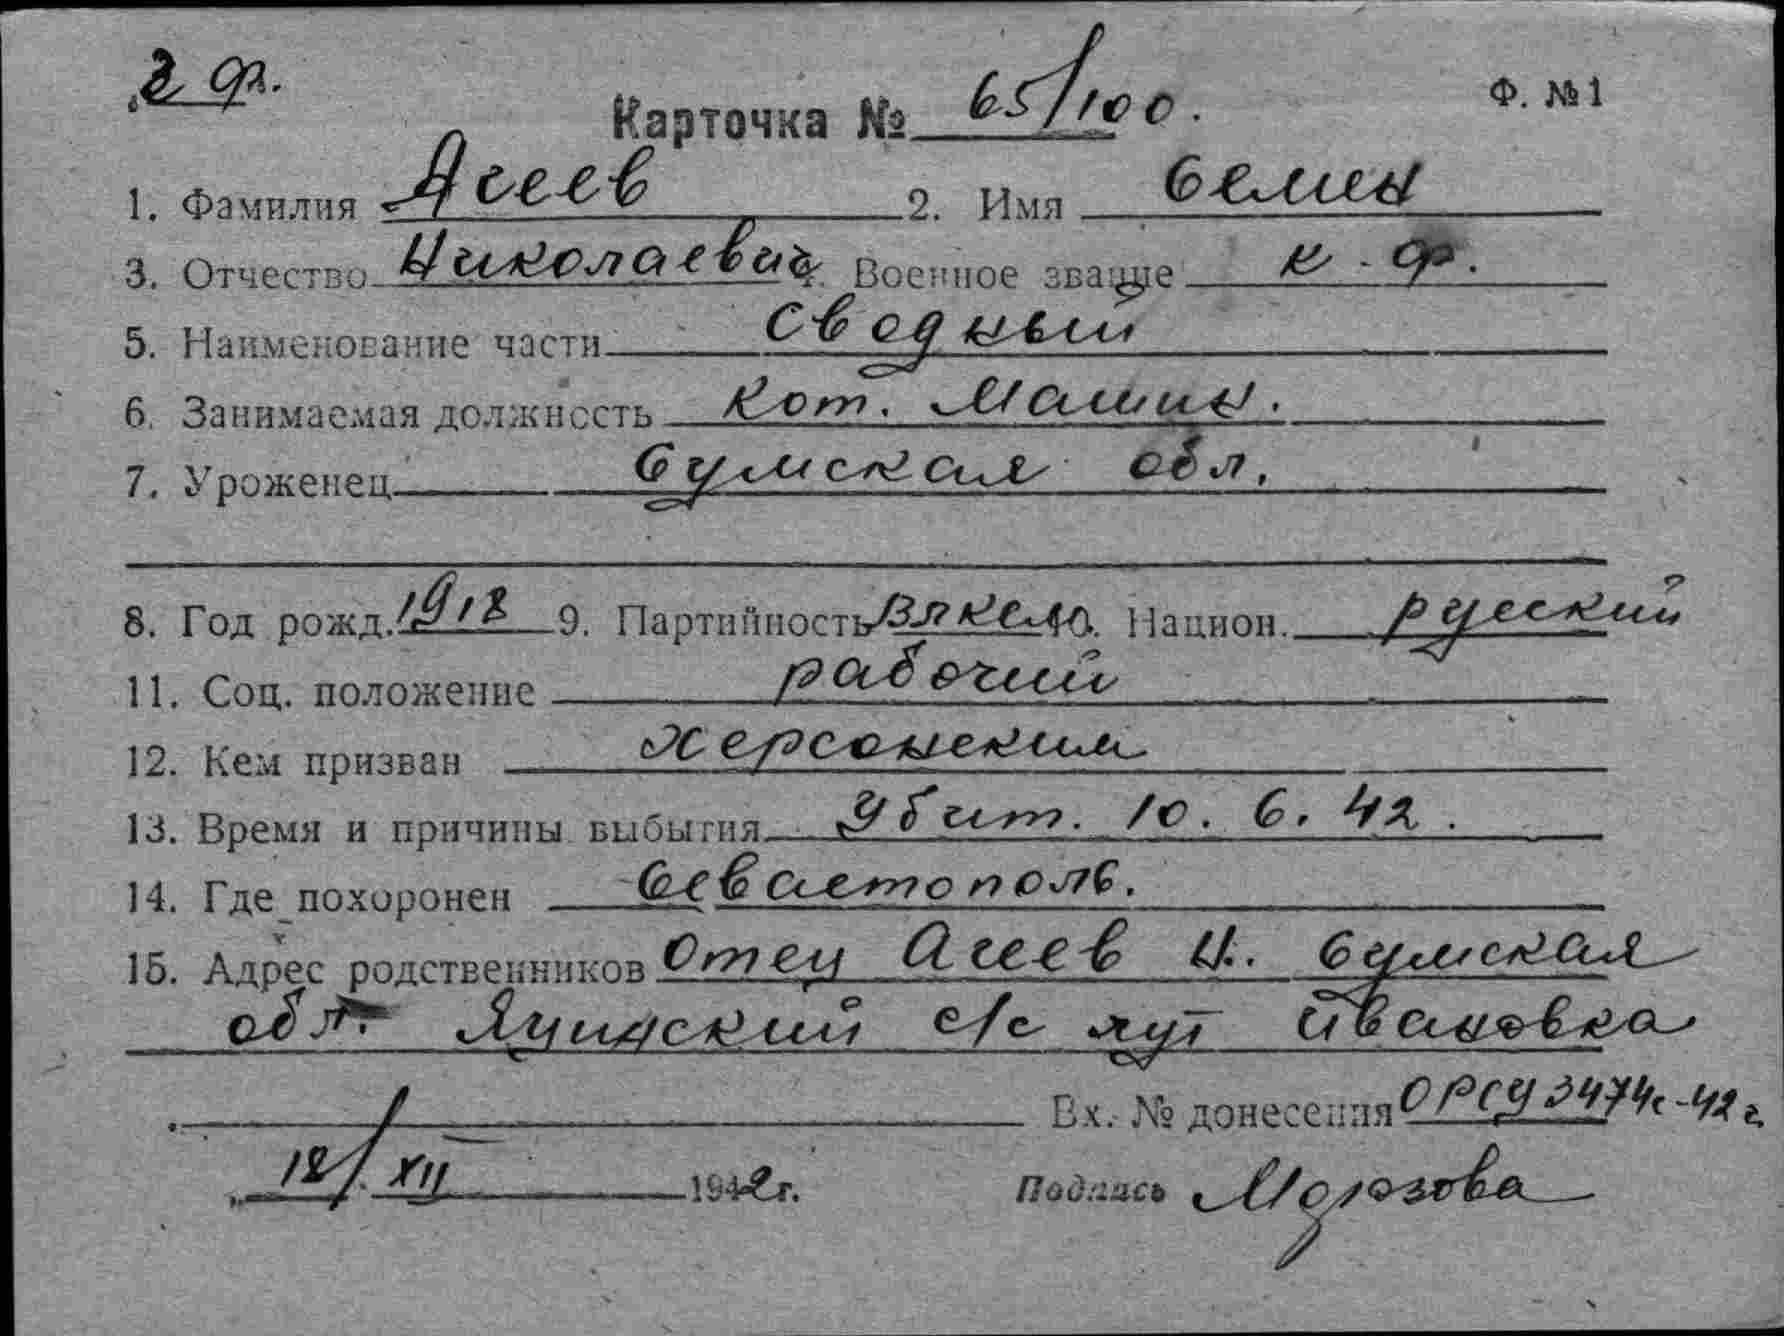 2 ф.
Карточка № 65/100. Ф. №1
1. Фамилия Агеев 2. Имя Семен
3. Отчество Николаевич 4. Военное звание к-ф.
5. Наименование части Сводный
6. Занимаемая должность Кот. Машин.
7. Уроженец Сумская обл.
8. Год рожд. 1918 9. Партийность ВЛКСМ 10. Национ. русский
11. Соц. положение рабочий
12. Кем призван Херсонским
13. Время и причины выбытия Убит. 10. 6. 42.
14. Где похоронен Севастополь.
15. Адрес родственников Отец Агеев Н. Сумская
обл. с/с хут Ивановка
Вх. № донесения ОРСУ 3474с-42г.
18/XII 1942г. Подпись Морозова